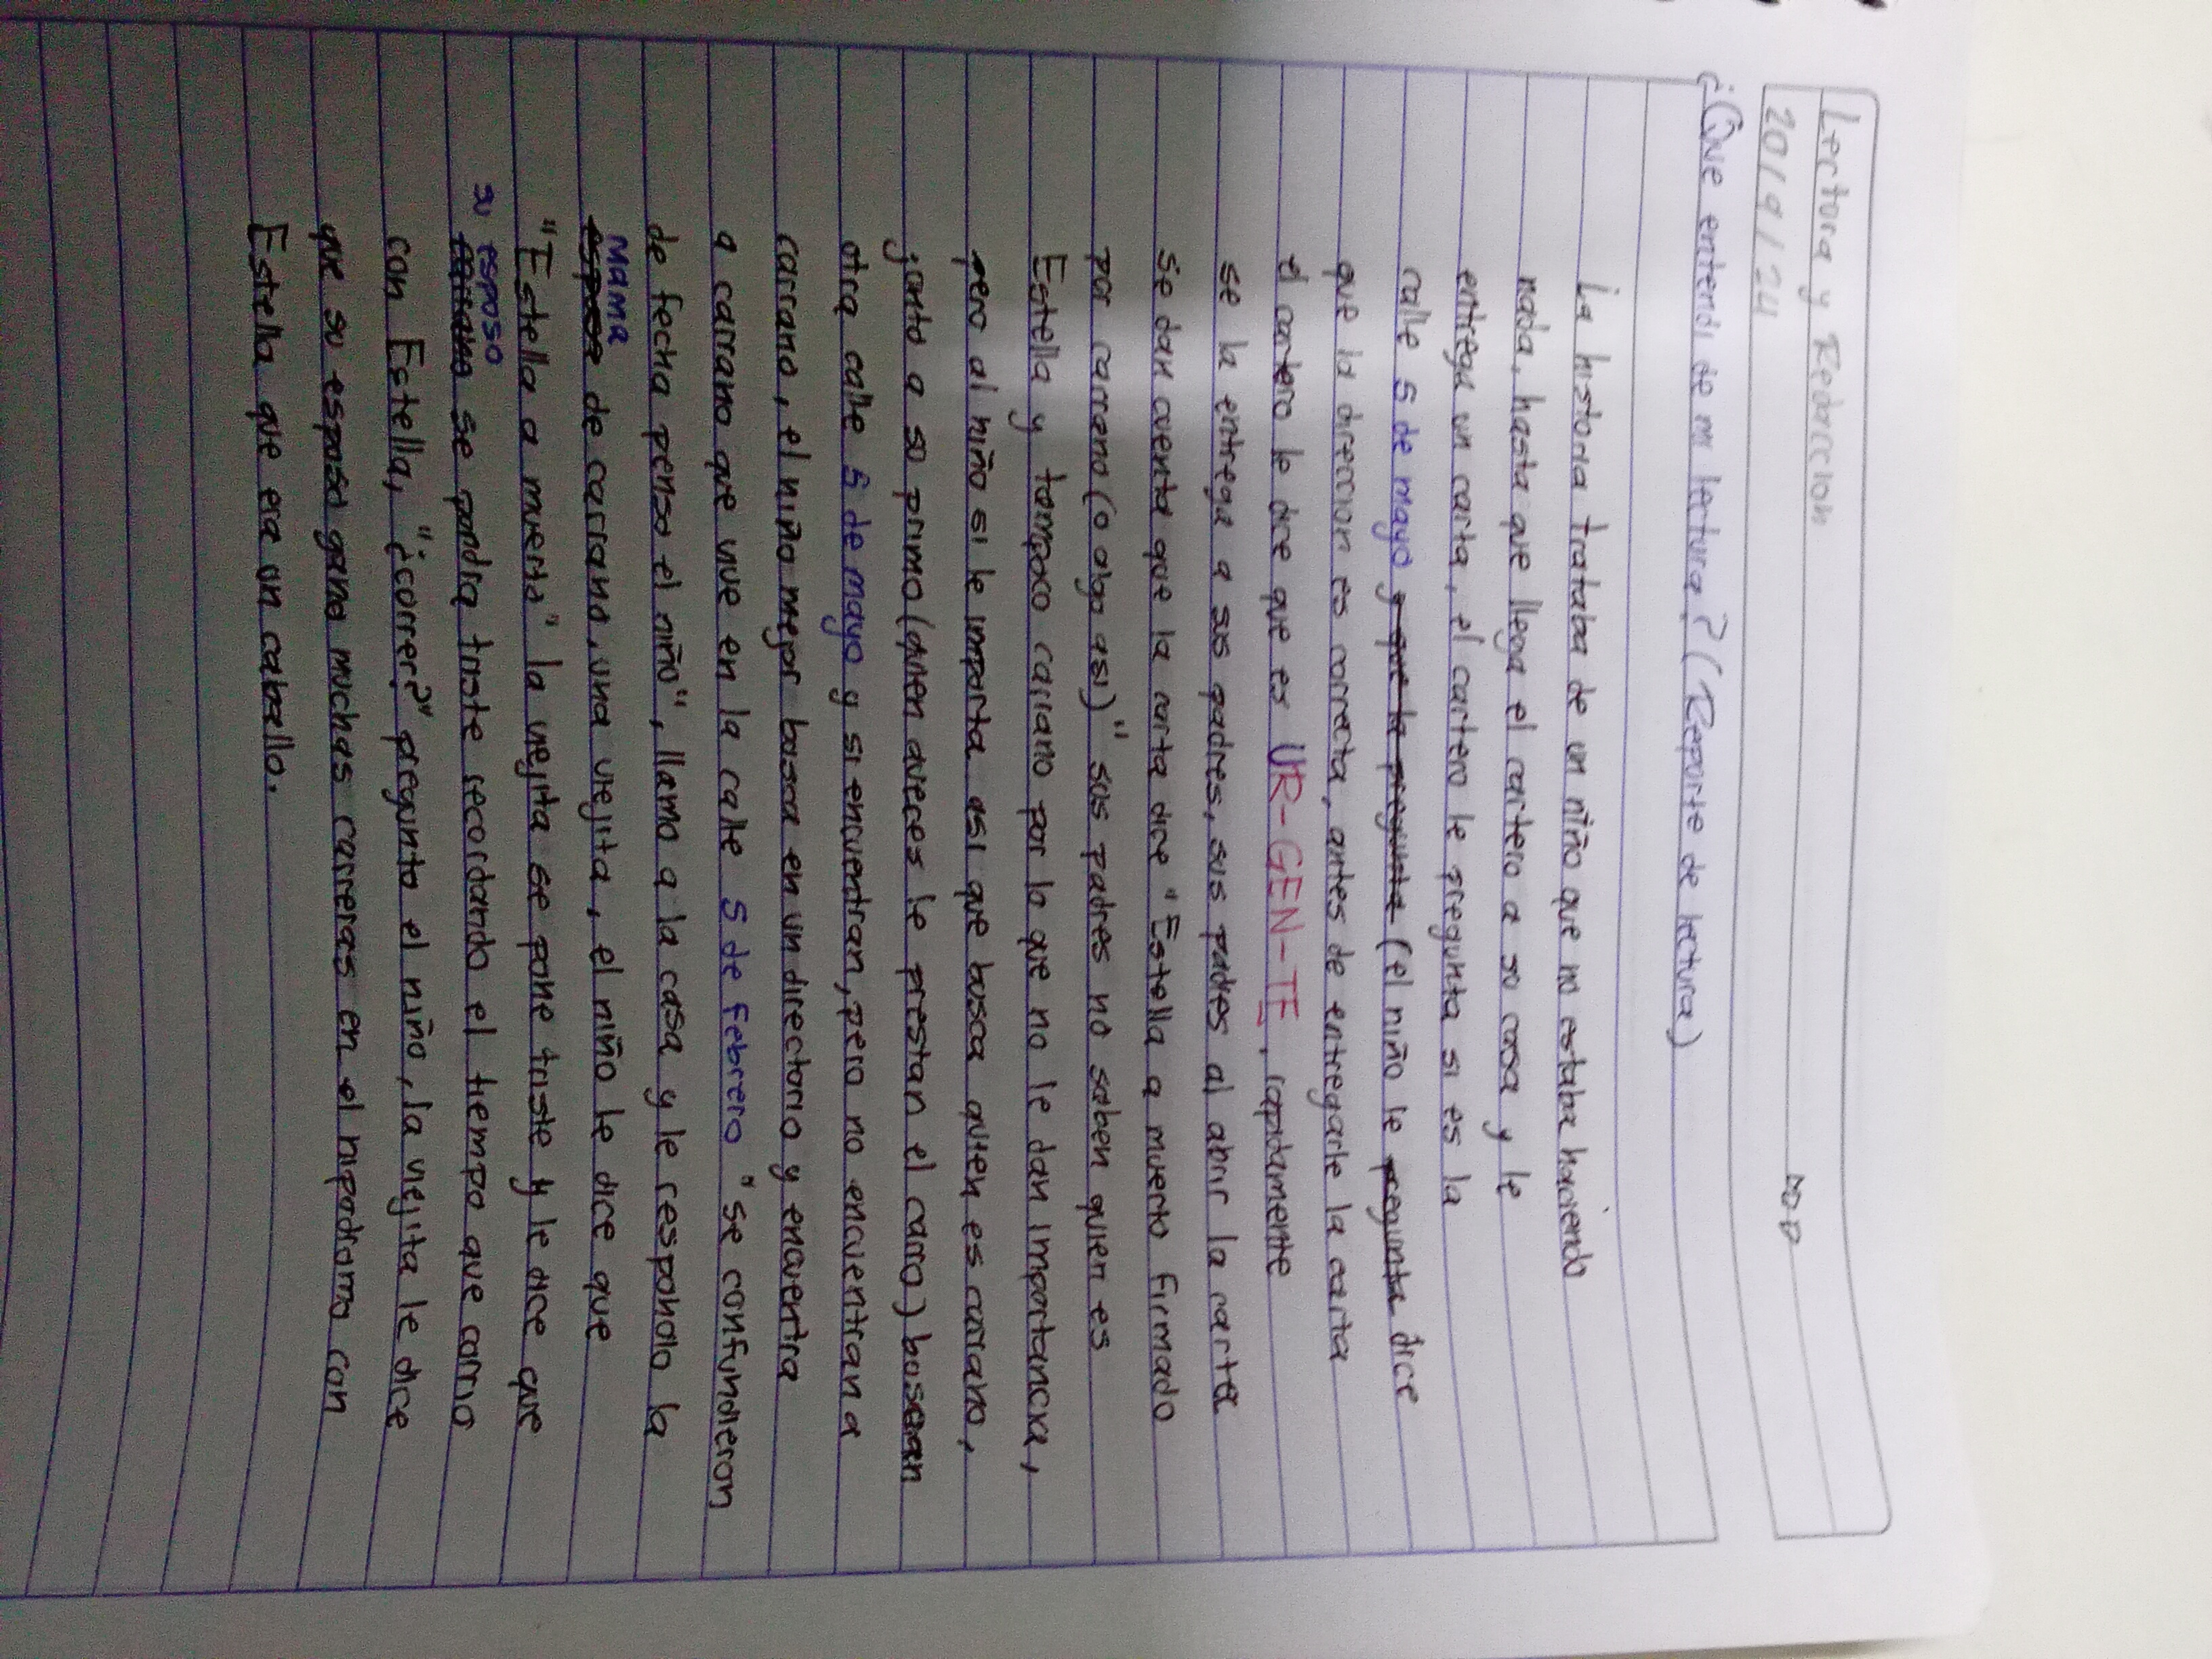 Lectura y Redaccion
20/9/24
¿Que entendi de mi lectura? (Reporte de lectura)
La historia trataba de un niño que no estaba haciendo
nada, hasta que llega el cartero a su casa y le
entrega un carta, el cartero le pregunta si es la
calle 5 de mayo y que la pregunta (el niño le pregunta dice
que la direccion es correcta, antes de entregarle la carta
el cartero le dice que es UR-GEN-TE, rapidamente
se la entrega a sus padres, sus padres al abrir la carta
se dan cuenta que la carta dice "Estella a muerto firmado
por carrano (o algo asi)" sus padres no saben quien es
Estella y tampoco carrano por lo que no le dan importancia,
pero al niño si le importa asi que busca quien es carrano,
junto a su primo (quien aveces le prestan el carro) buscan
otra calle 5 de mayo y si encuentran, pero no encuentran a
carrano, el niño mejor busca en un directorio y encuentra
a carrano que vive en la calle 5 de febrero "se confundieron
de fecha penso el niño", llamo a la casa y le respondio la
mama
esposa de carrano, una viejita, el niño le dice que
"Estella a muerto" la viejita se pone triste y le dice que
su esposo
se pondra triste recordando el tiempo que corrio
con Estella, "¿correr?" pregunto el niño, la viejita le dice
que su esposo gano muchas carreras en el hipodromo con
Estella que era un caballo.